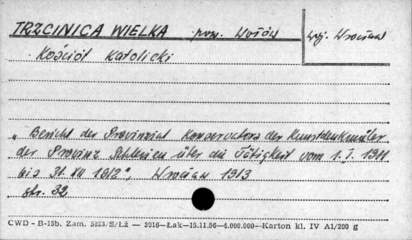 TRZCINICA WIELKA pow. Wołów woj. Wrocław
Kościół Katolicki
„Bericht des Provinzial Konservators der Kunstdenkmäler
der Provinz Schlesien über die Tätigkeit vom 1. I. 1911
bis 31. XII 1912", Wrocław 1913
str. 32
CWD - B-15b. Zam. 5123/S/ŁŻ — 2016—Łak—15.11.56—4.000.000—Karton kl. IV A1/200 g